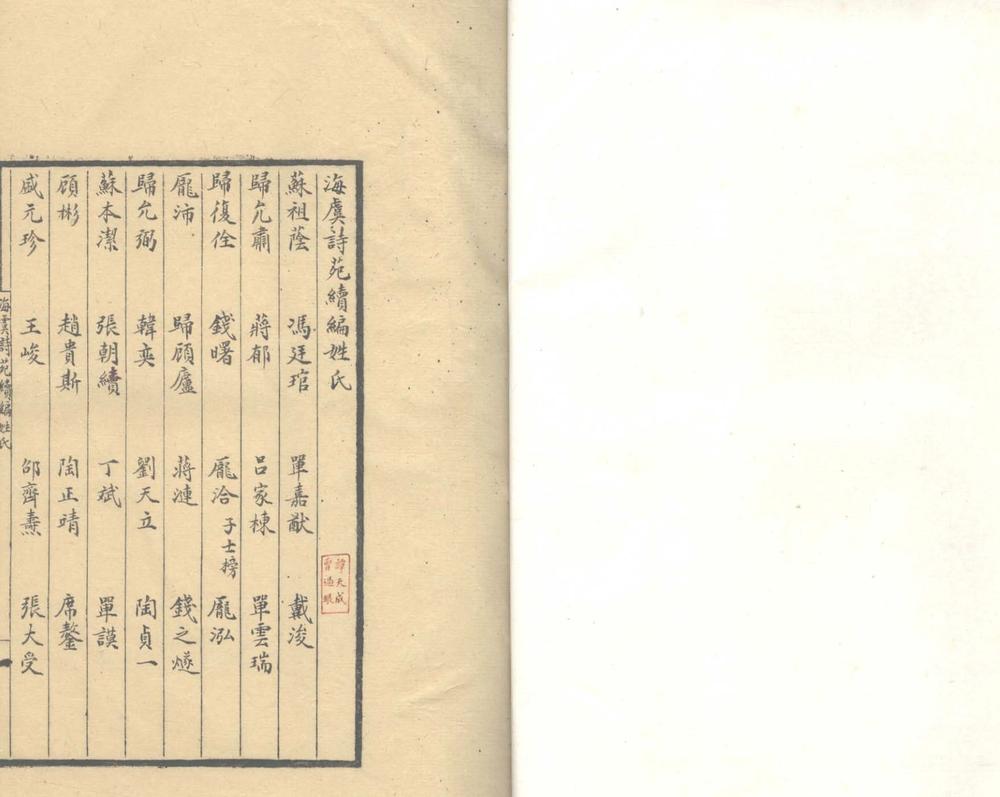 海虞詩苑續編姓氏
蘇祖蔭 馮廷琯 單嘉猷 戴浚
歸允肅 蔣郁 呂家棟 單雲瑞
歸復佺 錢曙 龐洽子士榜 龐泓
龐沛 歸顧廬 蔣漣 錢之燧
歸允弼 韓奕 劉天立 陶貞一
蘇本潔 張朝續 丁斌 單謨
顧彬 趙貴斯 陶正靖 席鏊
盛元珍 王峻 邵齊燾 張大受
海虞詩苑續編姓氏
譚天成
曾過眼